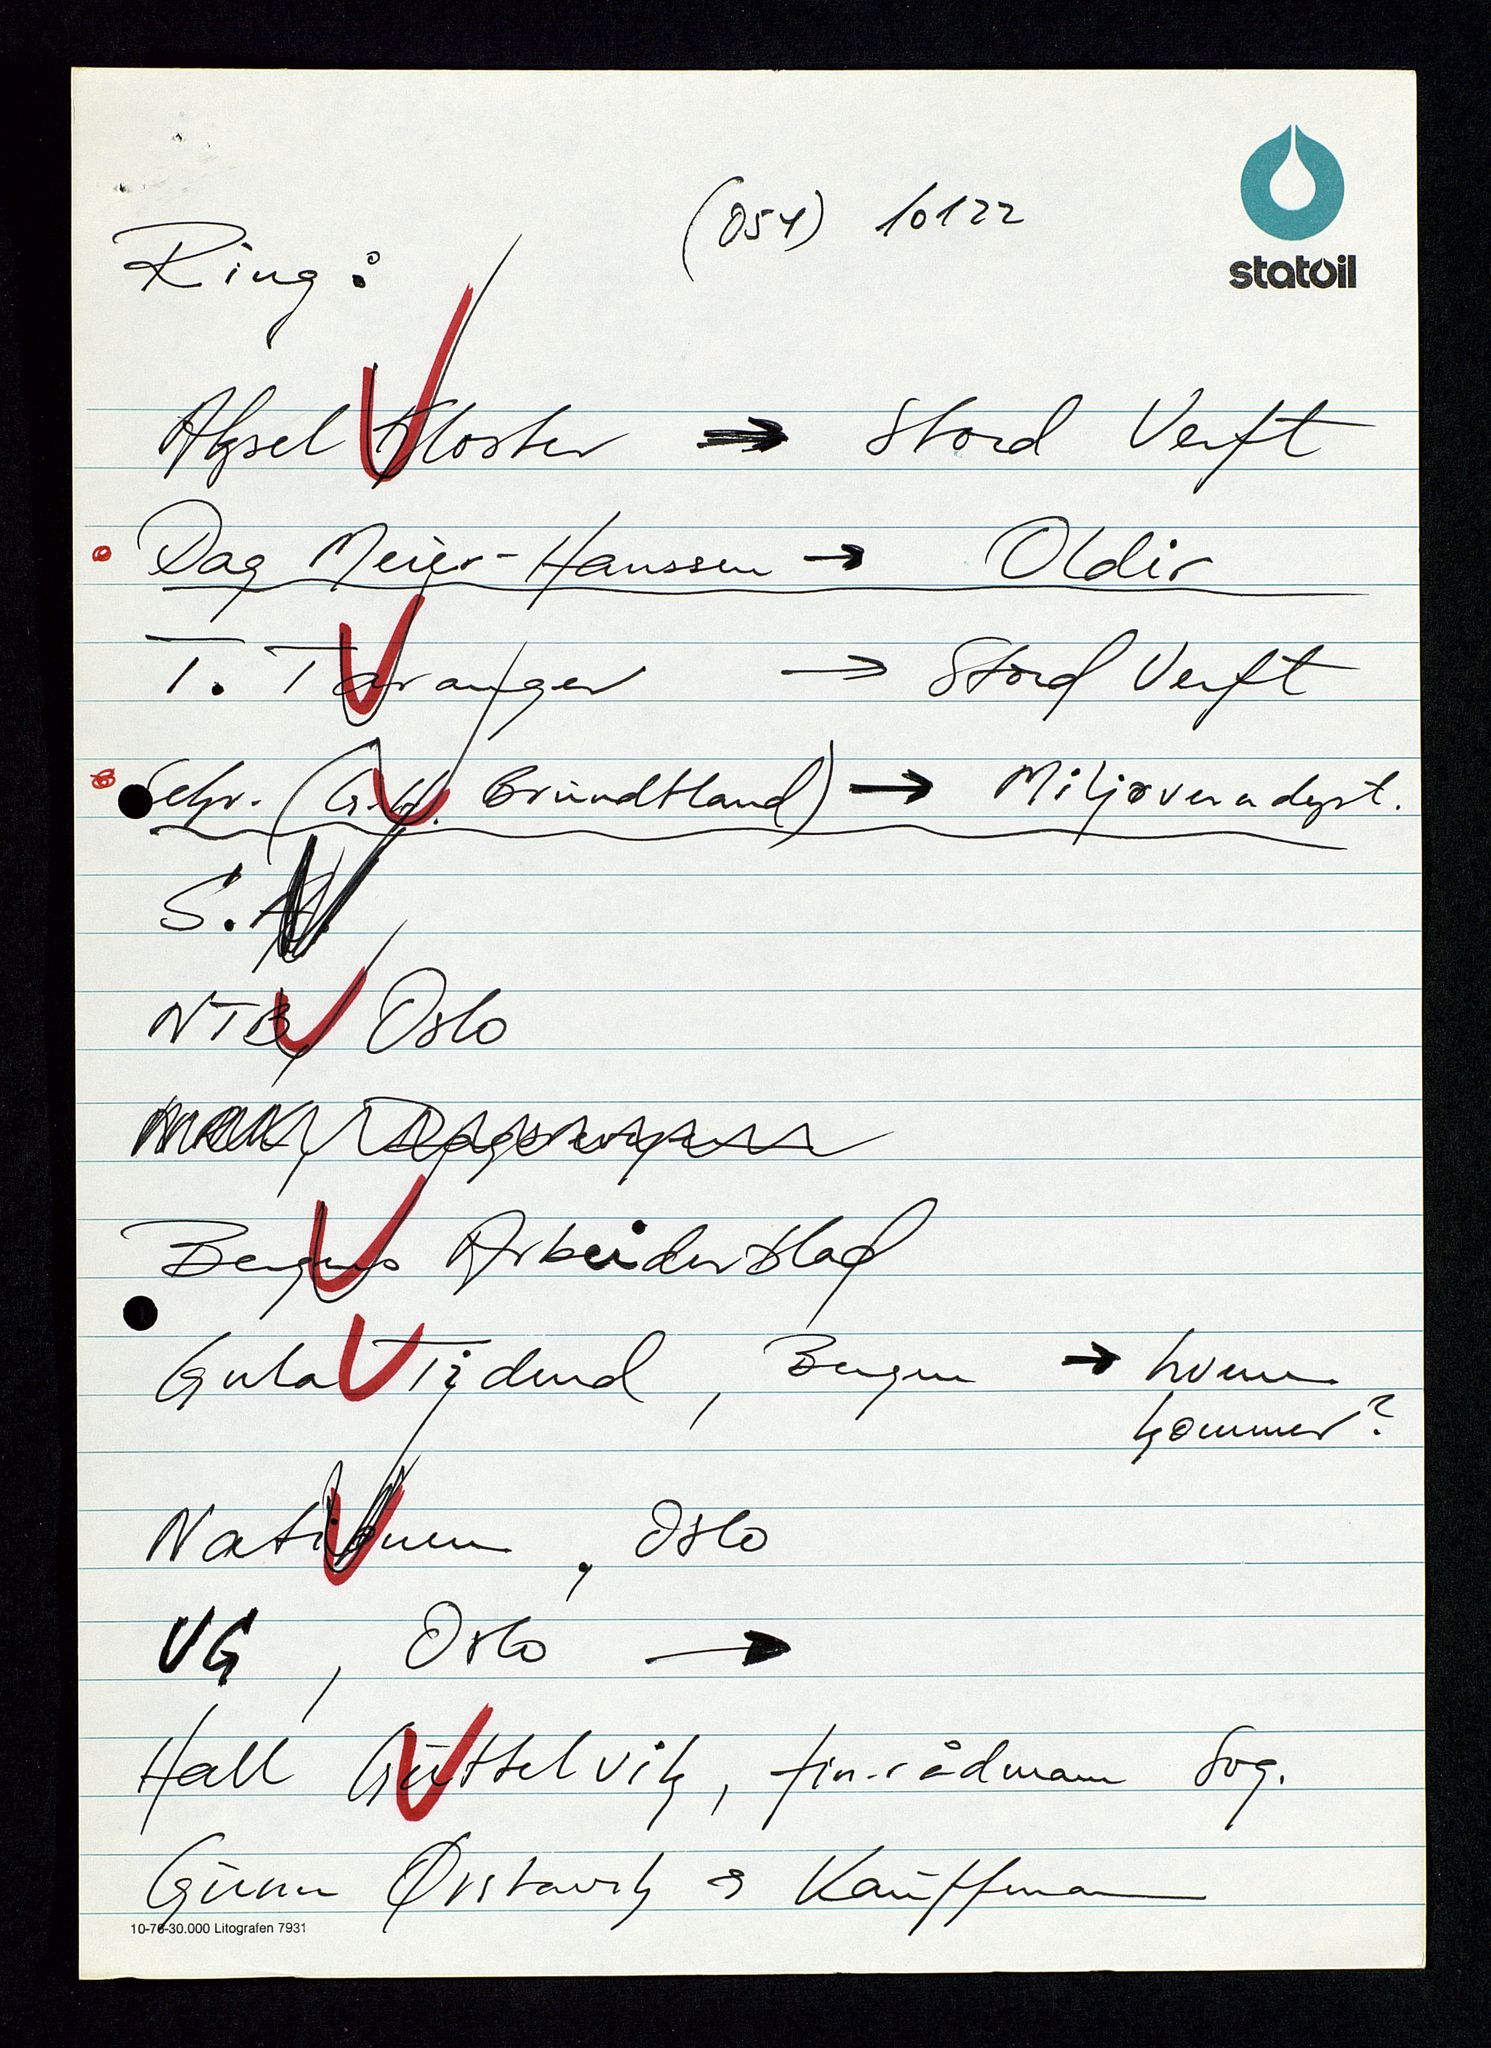 (054) 10122
statoil
Ring:
Aksel Kloster → Stord Verft
Dag Meier-Hanssen → Oldir
T. Taranger → Stord Verft
Sekr. (G.H. Brundtland) → Miljøverndept.
S.A.
NTB, Oslo
NRK, Dagsrevyen
Bergens Arbeiderblad
Gula Tidend, Bergen → hvem
kommer?
Nationen, Oslo
VG, Oslo →
Hall Guttelvik, fin.rådmann Sog.
Gunn Ørstavik & Kauffmann
10-76-30.000 Litografen 7931